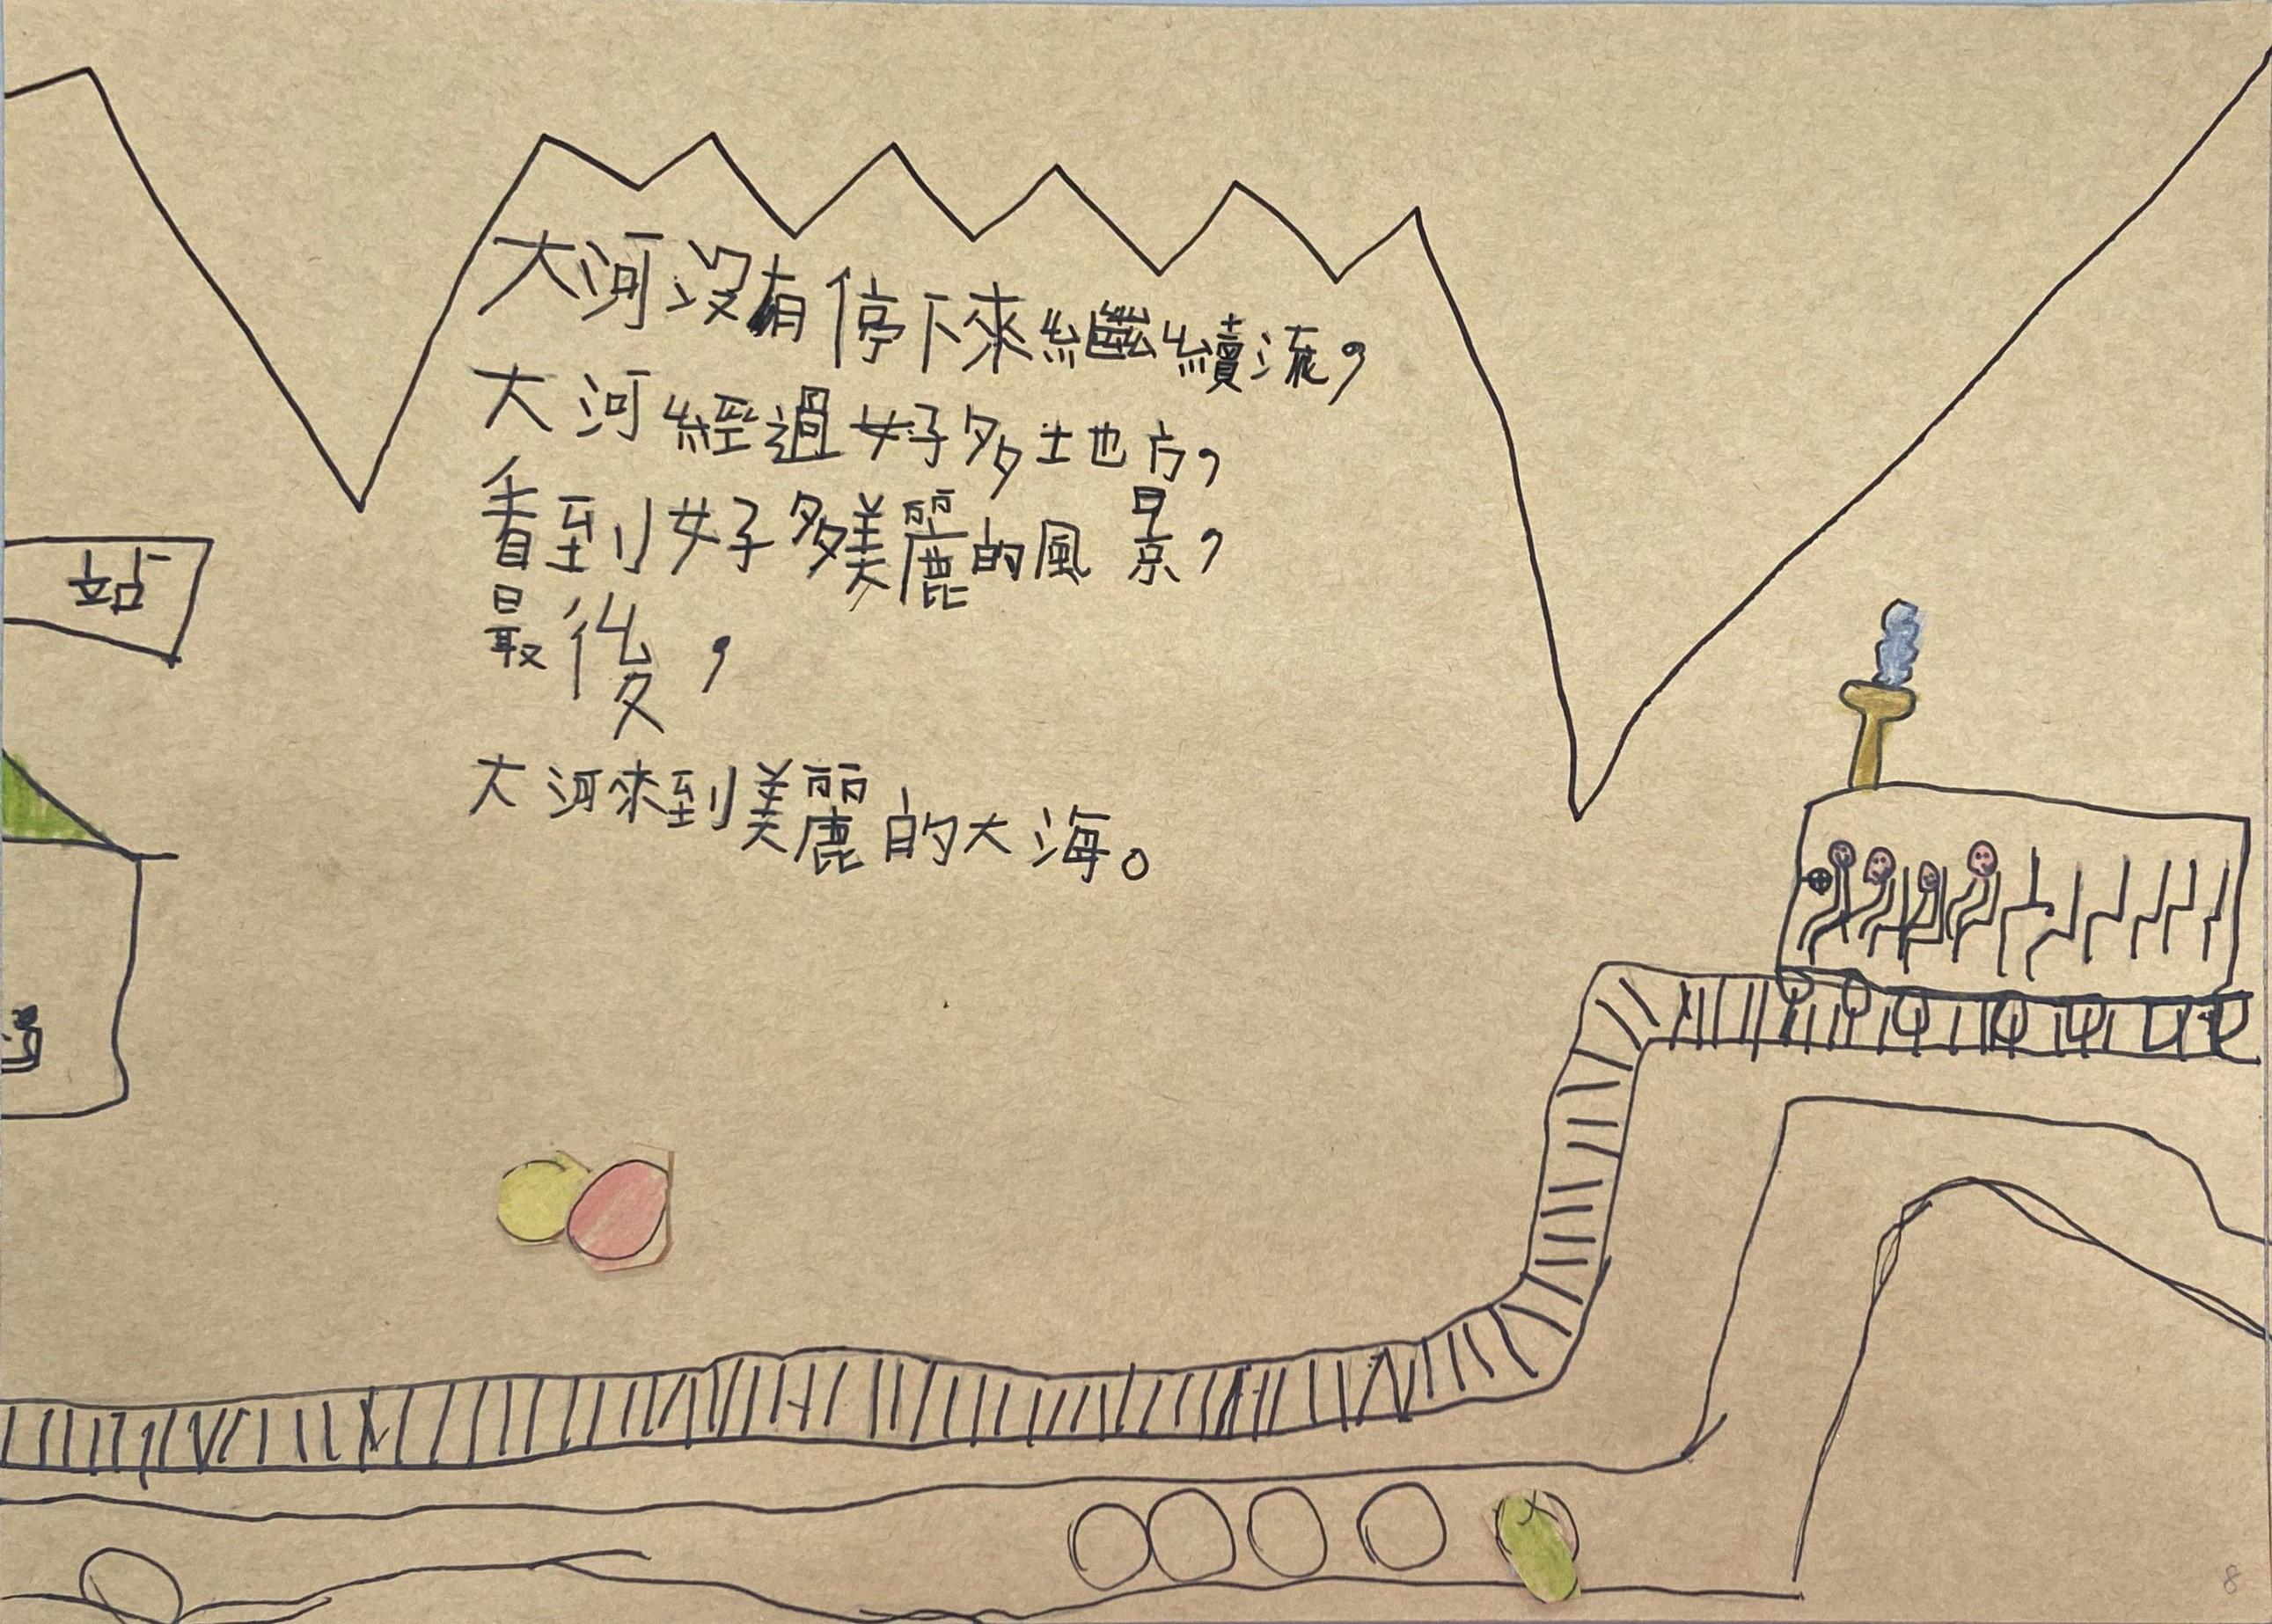 大河沒有停下來繼續流，
大河經過好多地方，
看到好多美麗的風景，
最後，
大河來到美麗的大海。
站
8